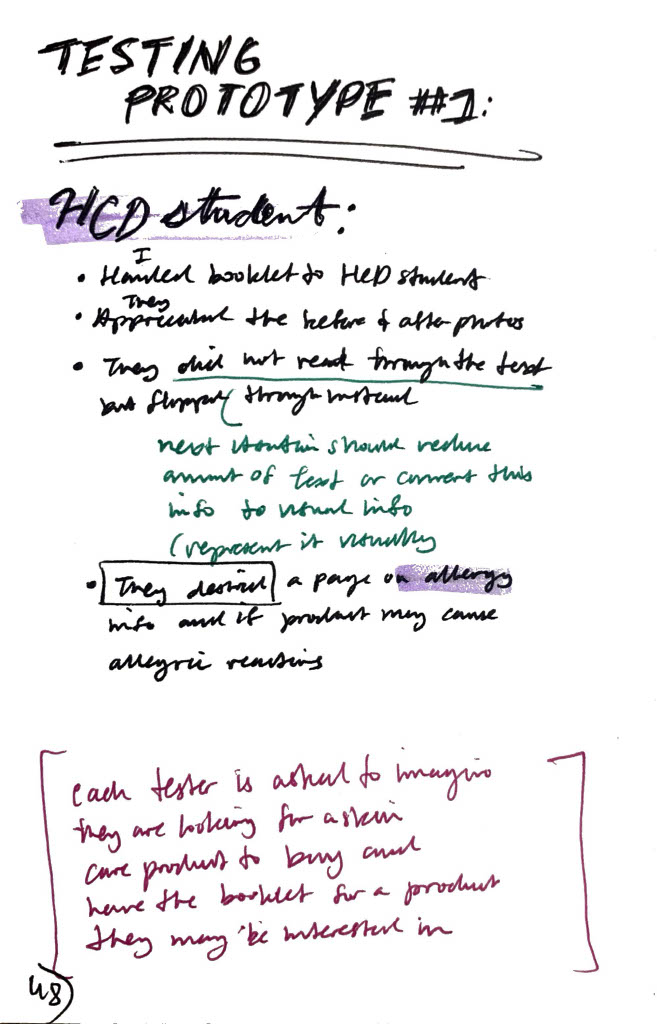 TESTING
PROTOTYPE #1:
HCD student:
I
• Handed booklet to HCD student
They
• Appreciated the before & after photos
• They did not read through the text
but flipped through instead
next iteration should reduce
amount of text or convert this
info to visual info
(represent it visually
• They desired a page on allergy
info and if product may cause
allergic reactions
each tester is asked to imagine
they are looking for a skin
care product to buy and
have the booklet for a product
they may be interested in
48